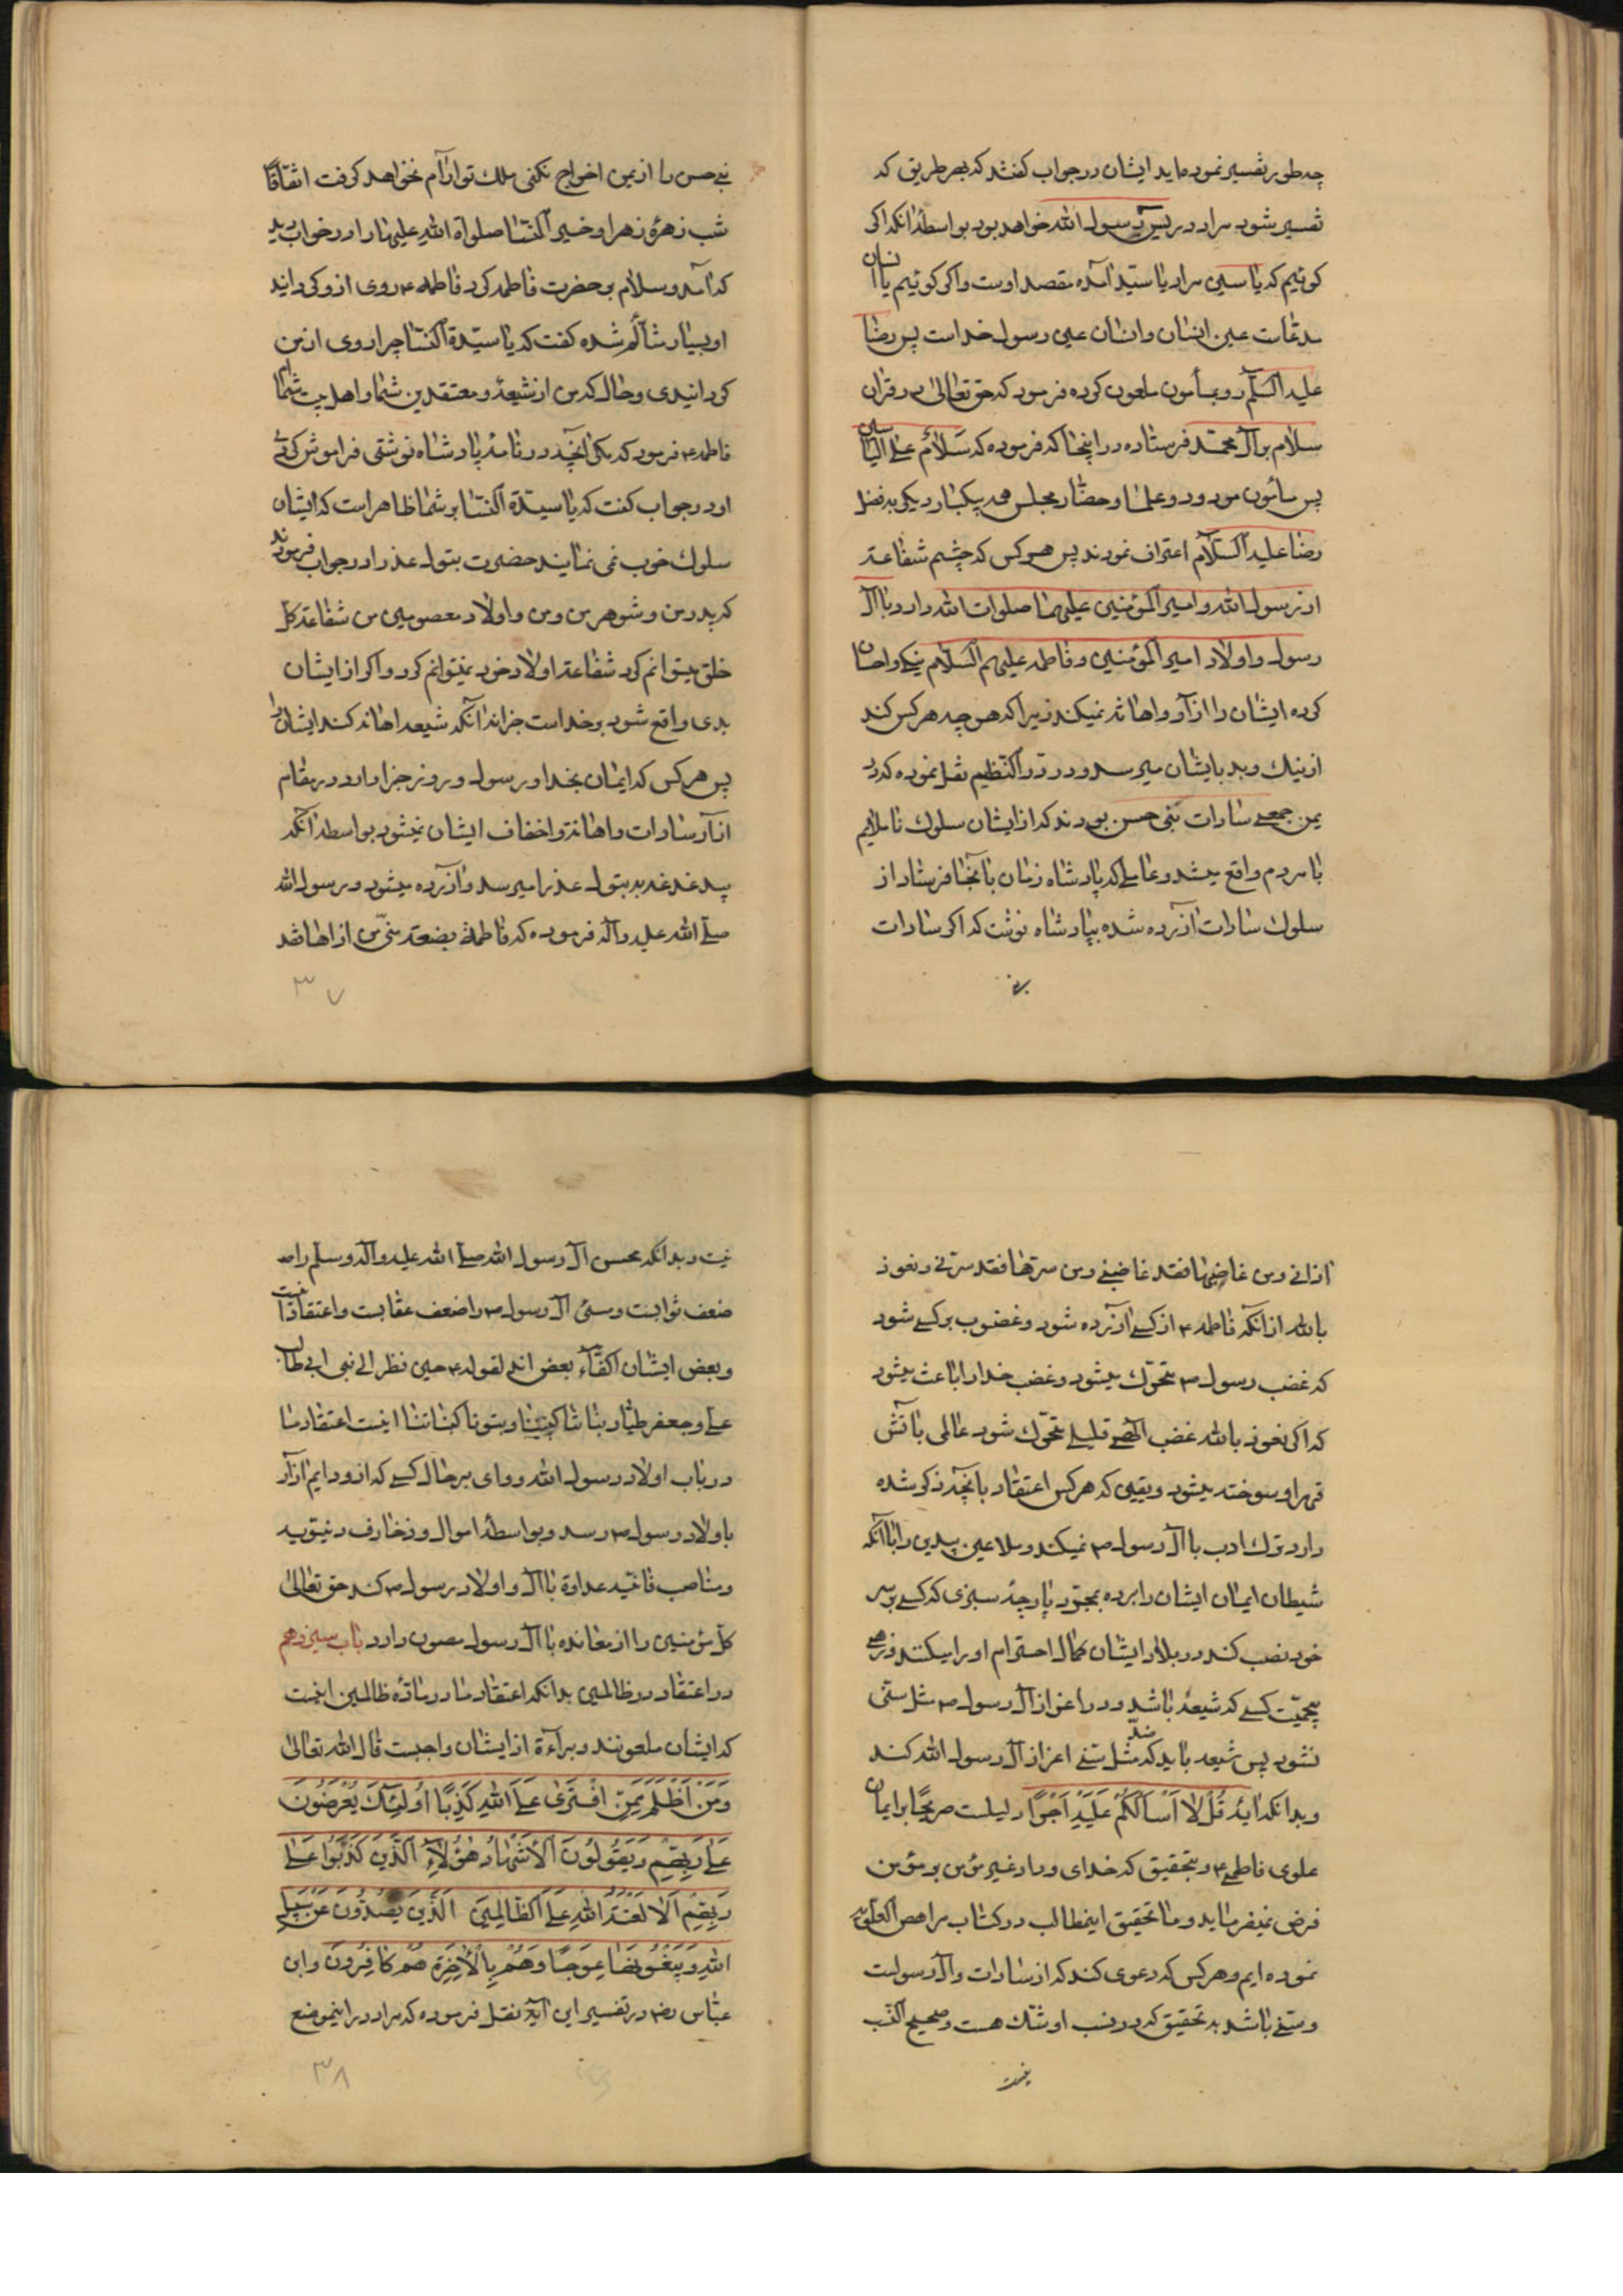 چه طور تفسیر نموده‌اید ایشان در جواب گفتند که بهر طریق که
تفسیر شود مراد در یس رسول الله خواهد بود بواسطهٔ انکه اکر
کوئیم که یا سین مراد یا سید آمده مقصد اوست و اکر کوئیم یا انسان
مدعاست عین انسان و انسان عین رسول خداست پس رضا
علیه السلم رو بمأمون ملعون کرده فرمود که حق تعالی در قران
سلام بر آل محمد فرستاده در اینجا که فرموده که سَلامٌ عَلی الیاسین
پس مأمون مردود و علما و حضار مجلس همه بیکبار دیکر بفضل
رضا علیه السلام اعتراف نمودند پس هر کس که چشم شفاعة
از رسول الله و امیر المؤمنین علیهما صلوات الله دارد با آل
رسول و اولاد امیر المؤمنین و فاطمه علیهم السلام نیکی و احسان
کرده ایشان را ازار و اهانة نمیکند زیرا که هر چه هر کس کند
از نیک و بد بایشان میرسد و در در النظیم نقل نموده که در
یمن جمعی سادات بنی حسن بودند که از ایشان سلوک ناملایم
با مردم واقع میشد و عاملی که پادشاه زمان بانجا فرستاد از
سلوک سادات ازرده شده بپادشاه نوشت که اکر سادات
بنی
بنی حسن را از یمن اخراج نکنی ملک تو ارام نخواهد کرفت اتفاقا
شب زهرهٔ زهرا و خیر النسا صلواة الله علیها را در خواب دید
که آمد و سلام بر حضرت فاطمه کرد فاطمه ع روی از و کردانید
او بسیار متألم شده کفت که یا سیدة النسا چرا روی از من
کردانیدی و حال که من از شیعهٔ و معتقدین شما و اهل بیت شماام
فاطمه ع فرمود که مکر انچه در نامه پادشاه نوشتی فراموش کردی
او در جواب کفت که یا سیدة النسا بر شما ظاهر است که ایشان
سلوک خوب نمی نمایند حضرت بتول عذرا در جواب فرمودند
که پدر من و شوهر من و من و اولاد معصومین من شفاعة کل
خلق میتوانم کرد شفاعة اولاد خود نمیتوانم کرد و اکر از ایشان
بدی واقع شود بر خداست جزا نه انکه شیعه اهانه کند ایشان را
پس هر کس که ایمان بخدا و رسول و روز جزا دارد در مقام
ازار سادات و اهانة و اخفاف ایشان نمیشود بواسطه انکه
بیدغدغه به بتول عذرا میرسد و ازرده میشود و رسول الله
صلی الله علیه و آله فرموده که فاطمة بضعة منّی من اهانها فقد
٣٧
اذانی و من غاضبها فقد غاضبنی و من سرها فقد سرنی و نعوذ
بالله از انکه فاطمه ع از کسی ازرده شود و غضوب بر کسی شود
که غضب رسول ص متحرّک میشود و غضب خدا را باعث میشود
که اکر نعوذ بالله غضب الهی قلیلی متحرّک شود عالمی باتش
قهر او سوخته میشود و یقین که هر کس اعتقاد بانچه ذکر شده
دارد ترک ادب با آل رسول ص نمیکند و ملاعین بیدین را با انکه
شیطان ایمان ایشان را برده بمجرّد پارچهٔ سبزی که کسی بر سر
خود نصب کند در بلاد ایشان کمال احترام او را میکنند و زهی
بیحمیّت کسی که شیعهٔ باشد و در اعزاز آل رسول ص مثل سنّی
نشود پس شیعه باید که ضد مثل سنّی اعزاز آل رسول الله کند
و بدانکه ایهٔ قُل لا اَسألُکُم عَلَیهِ اَجرًا دلیلست صریحًا بر ایمان
علوی فاطمی ع و بتحقیق که خدای وداد غیر مؤمن بر مؤمن
فرض نمیفرماید و ما تحقیق اینمطالب در کتاب مراهص العلویه
نموده ایم و هر کس که دعوی کند که از سادات و آل رسولست
و سنّی باشد به تحقیق که در نسب او شک هست و صحیح النسب
نیست
نیست و بدانکه محسن آل رسول الله صلی الله علیه و آله و سلّم را
ضعف ثوابست و مسئ آل رسول ص را ضعف عقابست و اعتقاد ما انست
و بعض ایشان اکفآء بعض اند لقوله ع حین نظر الی بنی ابی طالب
علی و جعفر طیار بناتنا کبنینا و بنونا کبناتنا اینست اعتقاد ما
در باب اولاد رسول الله و وای بر حال کسی که ازو دایم ازار
باولاد رسول ص رسد و بواسطهٔ اموال و زخارف دنیویه
و مناصب فانیه عداوة با آل و اولاد رسول ص کند حق تعالی
کل مؤمنین را از معانده با آل رسول مصون دارد باب سیزدهم
در اعتقاد در ظالمین بدانکه اعتقاد ما در مادهٔ ظالمین اینست
که ایشان ملعونند و براءة از ایشان واجبست قال الله تعالی
وَمَن اَظلَمُ مِمَّنِ افتَری عَلَی اللهِ کَذِبًا اُولئِکَ یُعرَضُونَ
عَلی رَبِّهِم وَیَقُولُونَ الاَشهادُ هؤُلاءِ الَّذینَ کَذَبُوا عَلی
رَبِّهِم اَلا لَعنَةُ اللهِ عَلَی الظّالِمینَ الَّذینَ یَصُدُّونَ عَن سَبیلِ
اللهِ وَیَبغُونَها عِوَجًا وَهُم بِالاخِرَةِ هُم کافِرُونَ و ابن
عبّاس رض در تفسیر این آیه نقل فرموده که مراد در اینموضع
٣٨